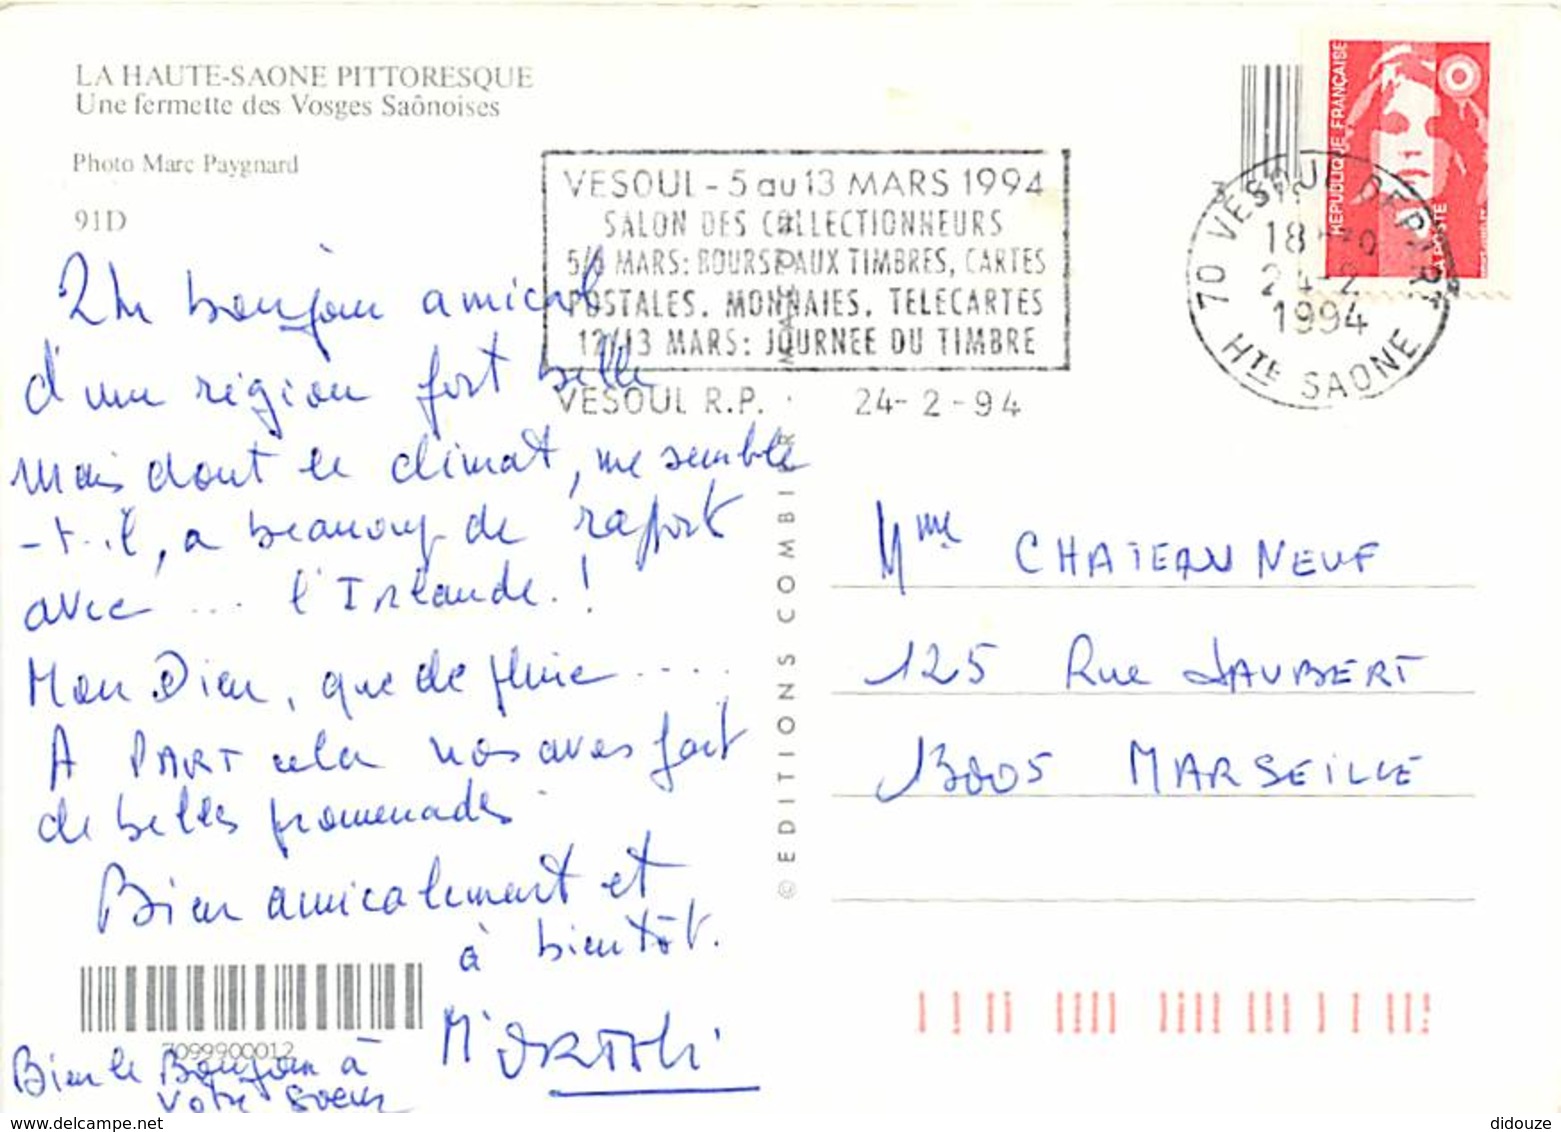 LA HAUTE-SAONE PITTORESQUE
Une fermette des Vosges Saônoises
Photo Marc Paygnard
91D
VESOUL - 5 au 13 MARS 1994
SALON DES COLLECTIONNEURS
5/6 MARS: BOURSE AUX TIMBRES, CARTES
POSTALES, MONNAIES, TELECARTES
12/13 MARS: JOURNEE DU TIMBRE
VESOUL R.P. 24-2-94
REPUBLIQUE FRANÇAISE
LA POSTE
70 VESOUL DEPART
18
24-2
1994
HTE SAONE
Un bonjour amical
d'une région fort belle
mais dont le climat, me semble
-t-il, a beaucoup de raport
avec ... l'Irlande.!
Mon Dieu, que de pluie ....
A PART cela nos aves fait
de belles promenades
Bien amicalement et
à bientôt.
Bien le Bonjour à
votre soeur
7099900012
© EDITIONS COMBIER
Mme CHATEAUNEUF
125 Rue JAUBERT
13005 MARSEILLE
didouze